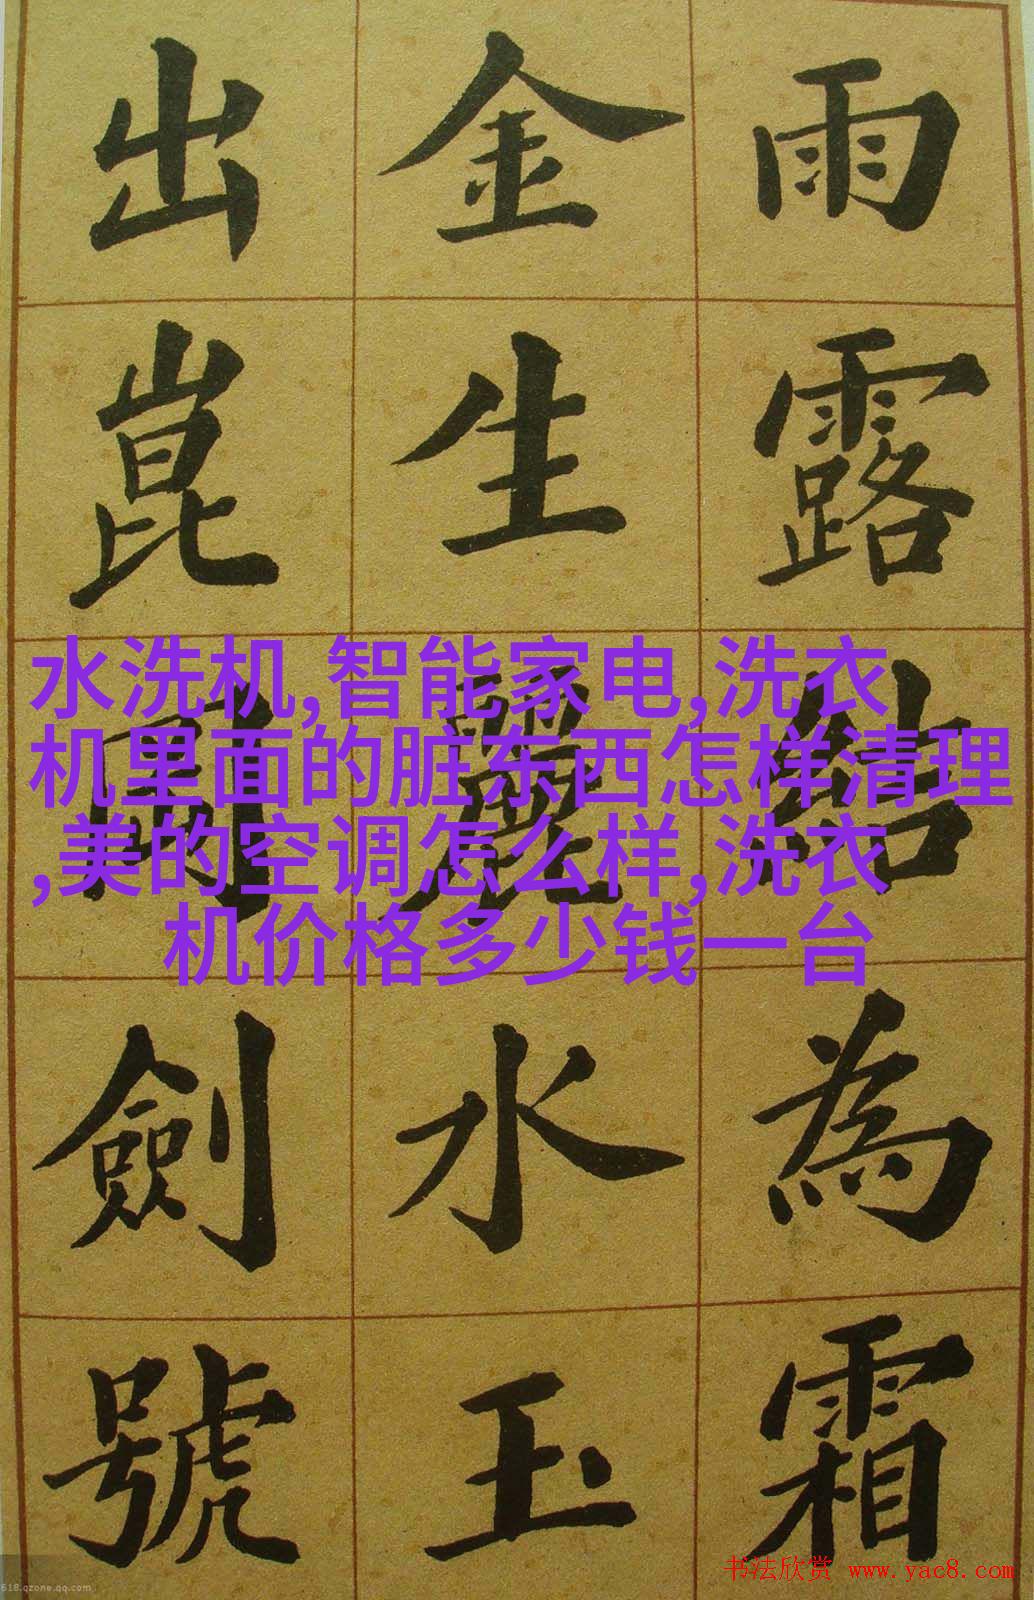 雨露結為霜
金生麗水玉
出崑岡劍號
水洗机,智能家电,洗衣
机里面的脏东西怎样清理
,美的空调怎么样,洗衣
机价格多少钱一台
书法欣赏 www.yac8.com
618.qzone.qq.com